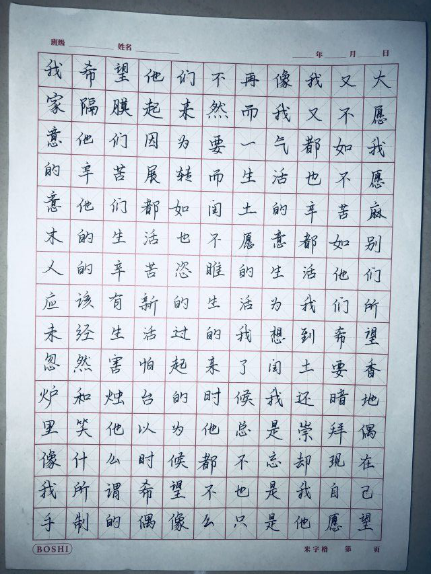 班级 姓名 年 月 日
我希望他们不再像我又大
家隔膜起来然而我又不愿
意他们因为要一气都如我
的辛苦展转而生活也不愿
意他们都如闰土的辛苦麻
木的生活也不愿意都如别
人的辛苦恣睢的生活他们
应该有新的生活为我们所
未经生活过的我想到希望
忽然害怕起来了闰土要香
炉和烛台的时候我还暗地
里笑他以为他总是崇拜偶
像什么时候都不忘却现在
我所谓希望不也是我自己
手制的偶像么只是他愿望
BOSHI 米字格 第 页